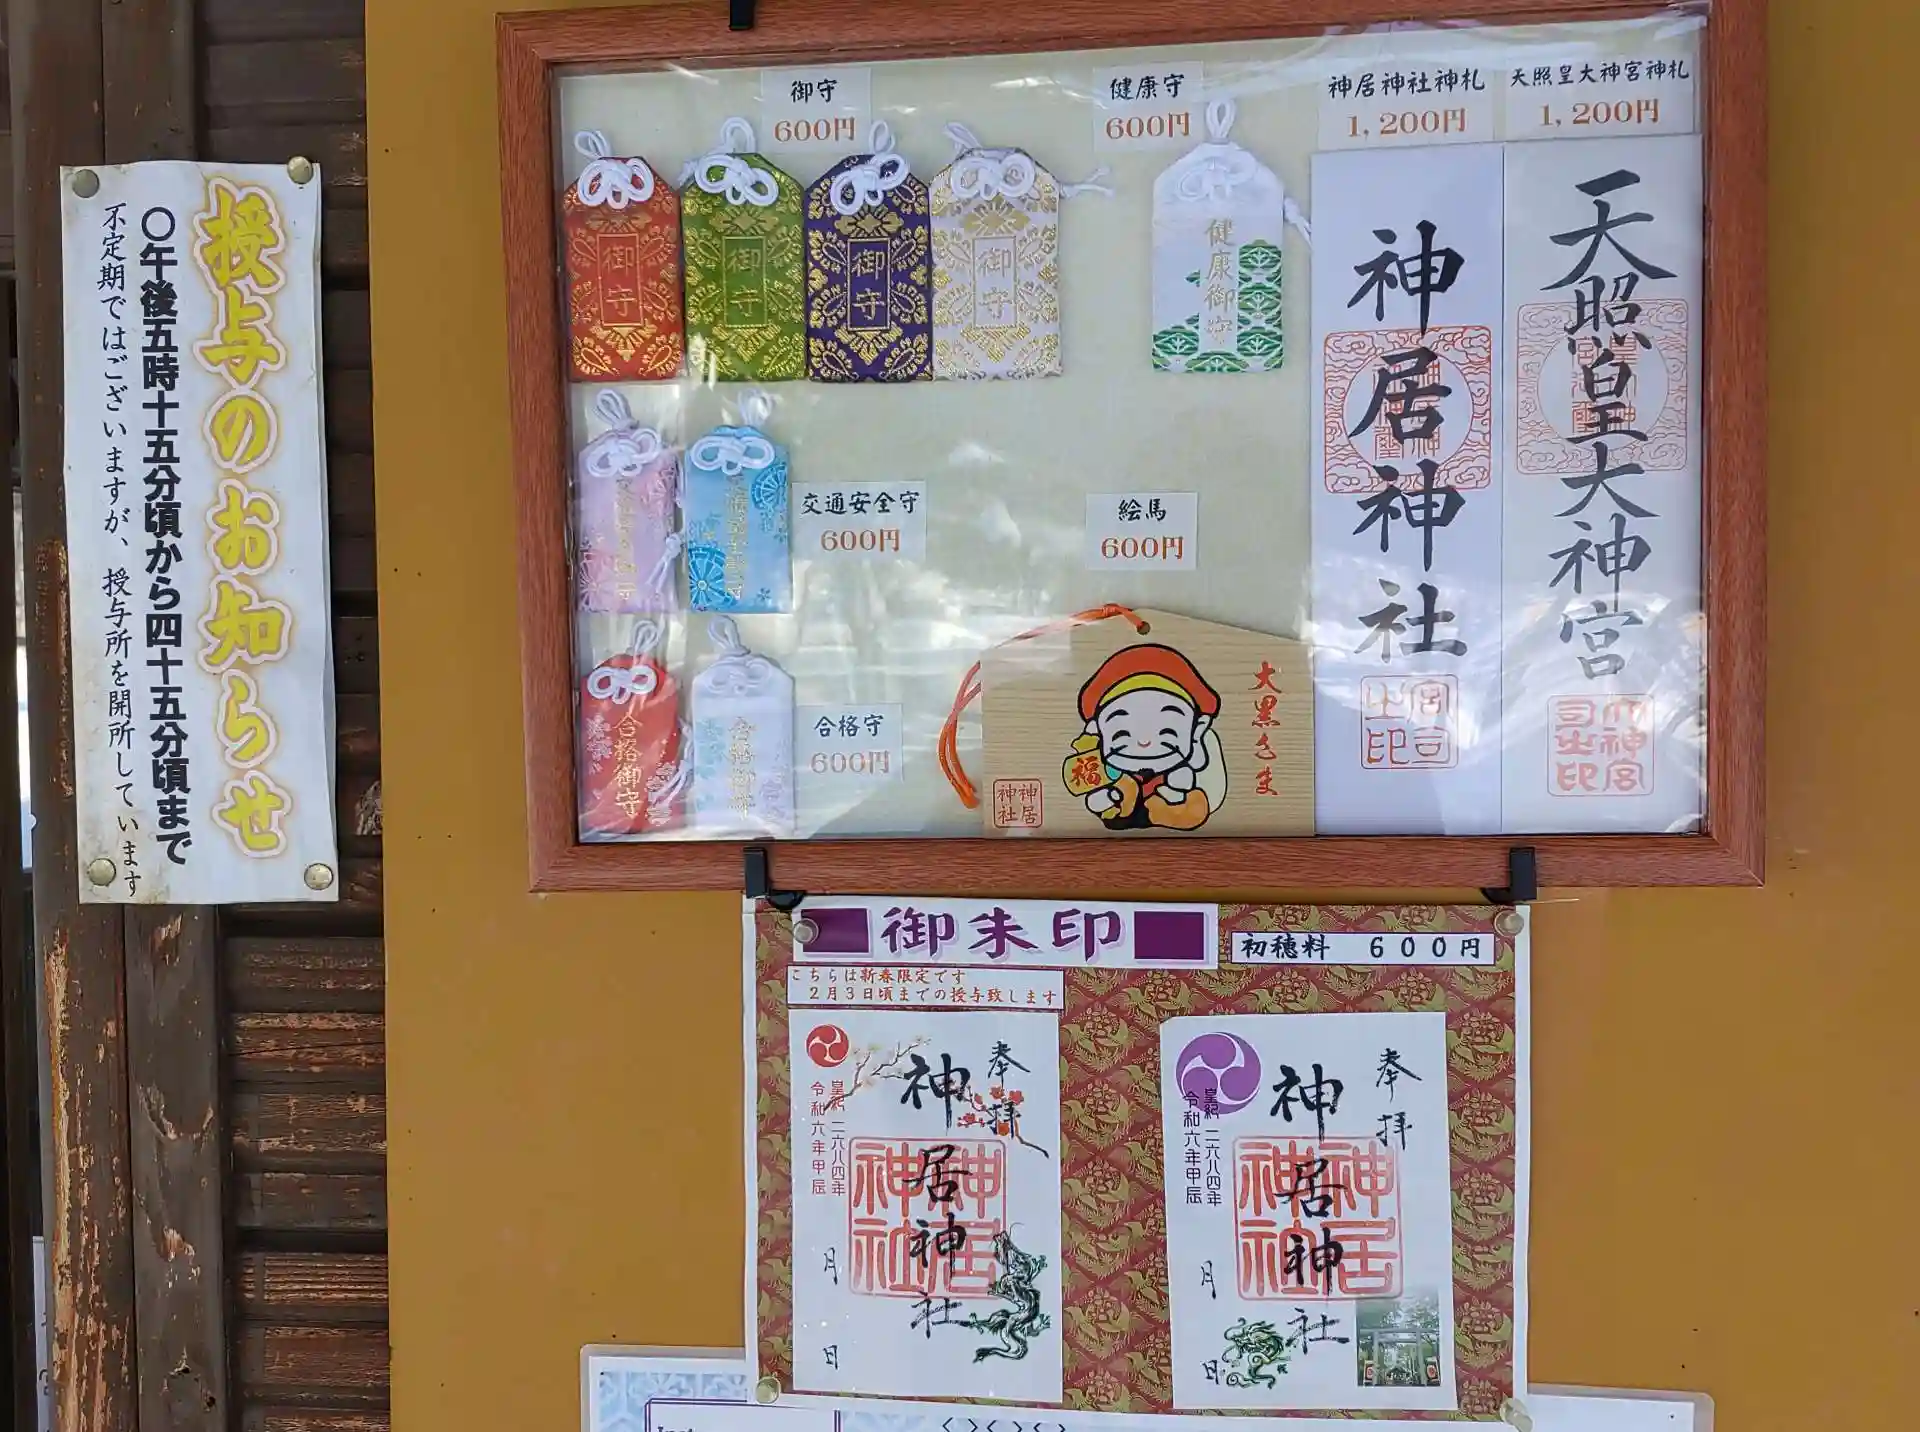 授与のお知らせ
〇午後五時十五分頃から四十五分頃まで
不定期ではございますが、授与所を開所しています
御守
600円
健康守
600円
神居神社神札
1,200円
天照皇大神宮神札
1,200円
御守
御守
御守
御守
健康御守
神居神社
天照皇大神宮
交通安全守
600円
絵馬
600円
合格守
600円
合格御守
合格御守
大黒さま
福
神居神社
御朱印
初穂料 600円
こちらは新春限定です
2月3日頃までの授与致します
奉拝
神居神社
神居神社
皇紀二六八四年
令和六年甲辰
月 日
奉拝
神居神社
神居神社
皇紀二六八四年
令和六年甲辰
月 日